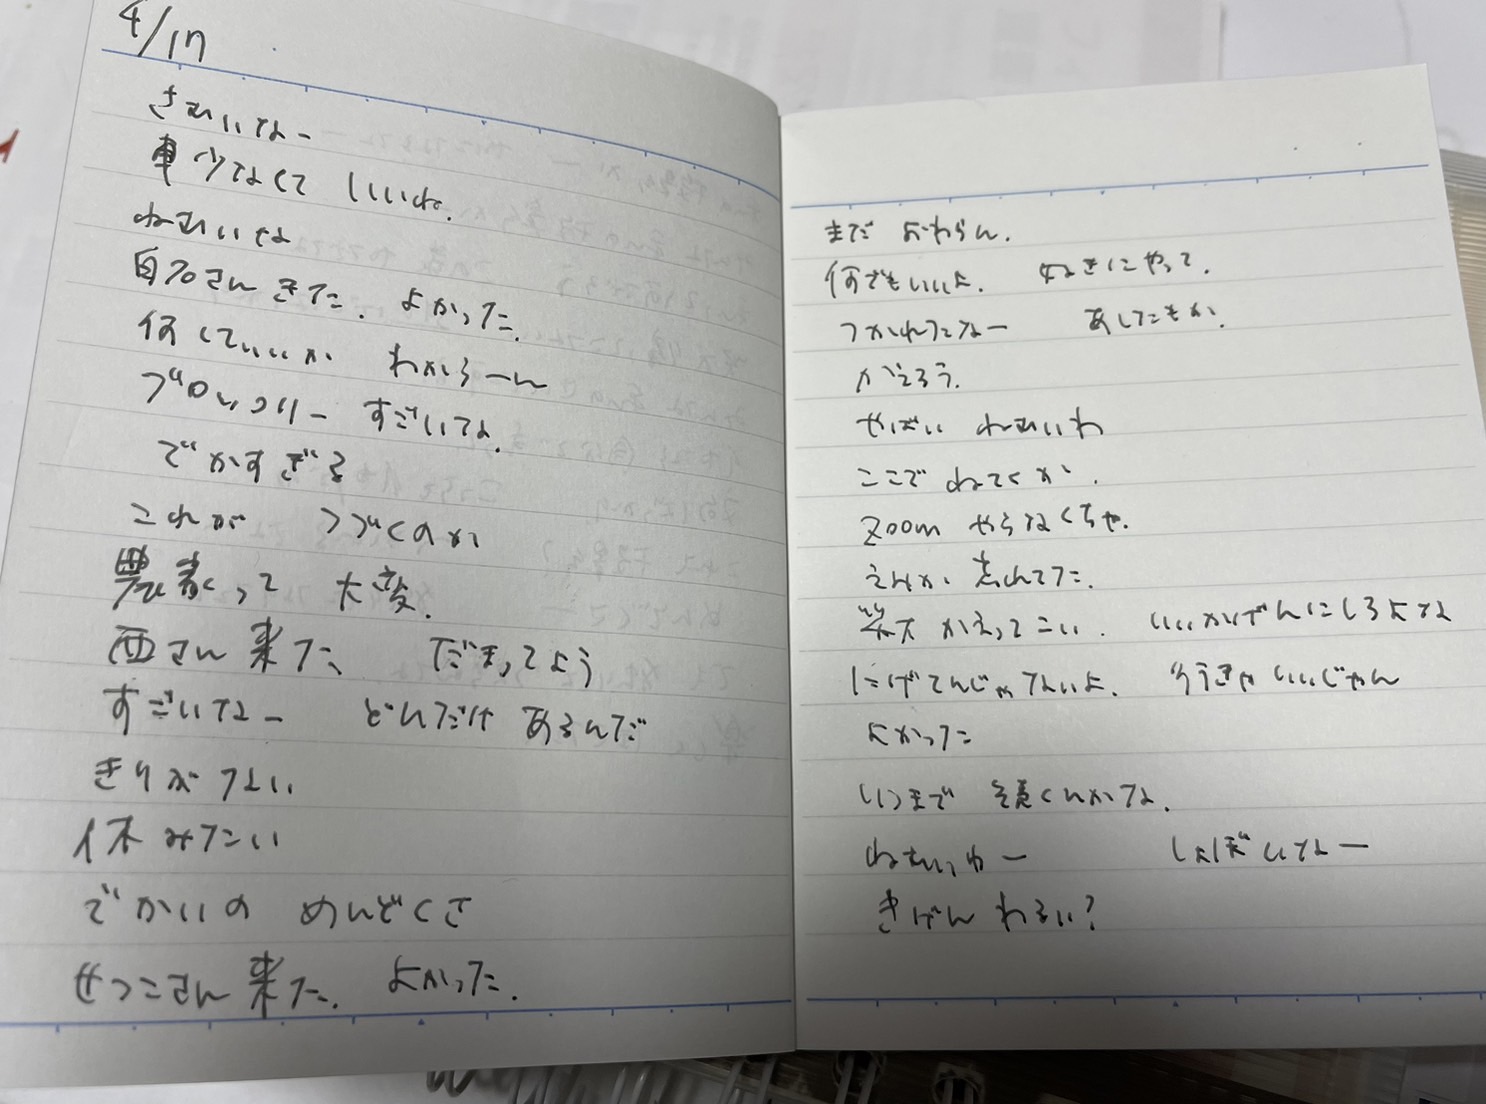 4/17
さむいなー
車少なくて いいね.
ねむいな
さんきた. よかった.
何していいか わからーん
ブロッコリー すごいな.
でかすぎる
これが つづくのか
農業って 大変.
西さん 来た. だまってよう
すごいなー どんだけ あるんだ
きりがない
休みたい
でかいの めんどくさ
せつこさん 来た. よかった.
まだ おわらん.
何でもいいよ. すきにやって.
つかれたなー あしたもか.
かえろう.
やばい ねむいわ
ここで ねてくか.
Zoom やらなくちゃ.
忘れてた.
かえってこい. いいかげんにしろよな
にげてんじゃないよ. いいじゃん
よかった
いつまで 続くんかな.
ねむっかー しょぼいなー
きげん わるい?